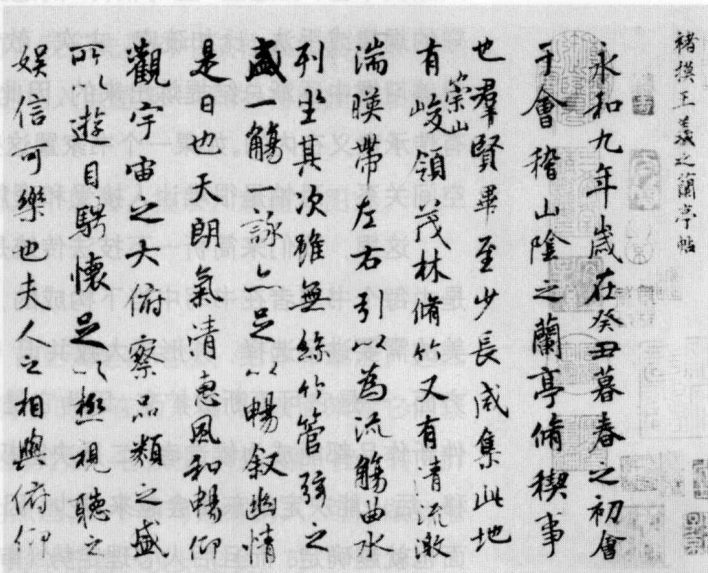 褚摸王羲之蘭亭帖
永和九年歲在癸丑暮春之初會
于會稽山陰之蘭亭脩稧事
也羣賢畢至少長咸集此地
有崇山峻領茂林脩竹又有清流激
湍暎帶左右引以為流觴曲水
列坐其次雖無絲竹管弦之
盛一觴一詠亦足以暢叙幽情
是日也天朗氣清惠風和暢仰
觀宇宙之大俯察品類之盛
所以遊目騁懷足以極視聽之
娛信可樂也夫人之相與俯仰